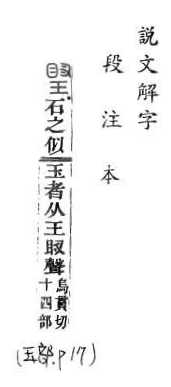 說文解字
段注本
石之似玉者从王䀏聲烏貫切
十四部
(玉部. P 17)